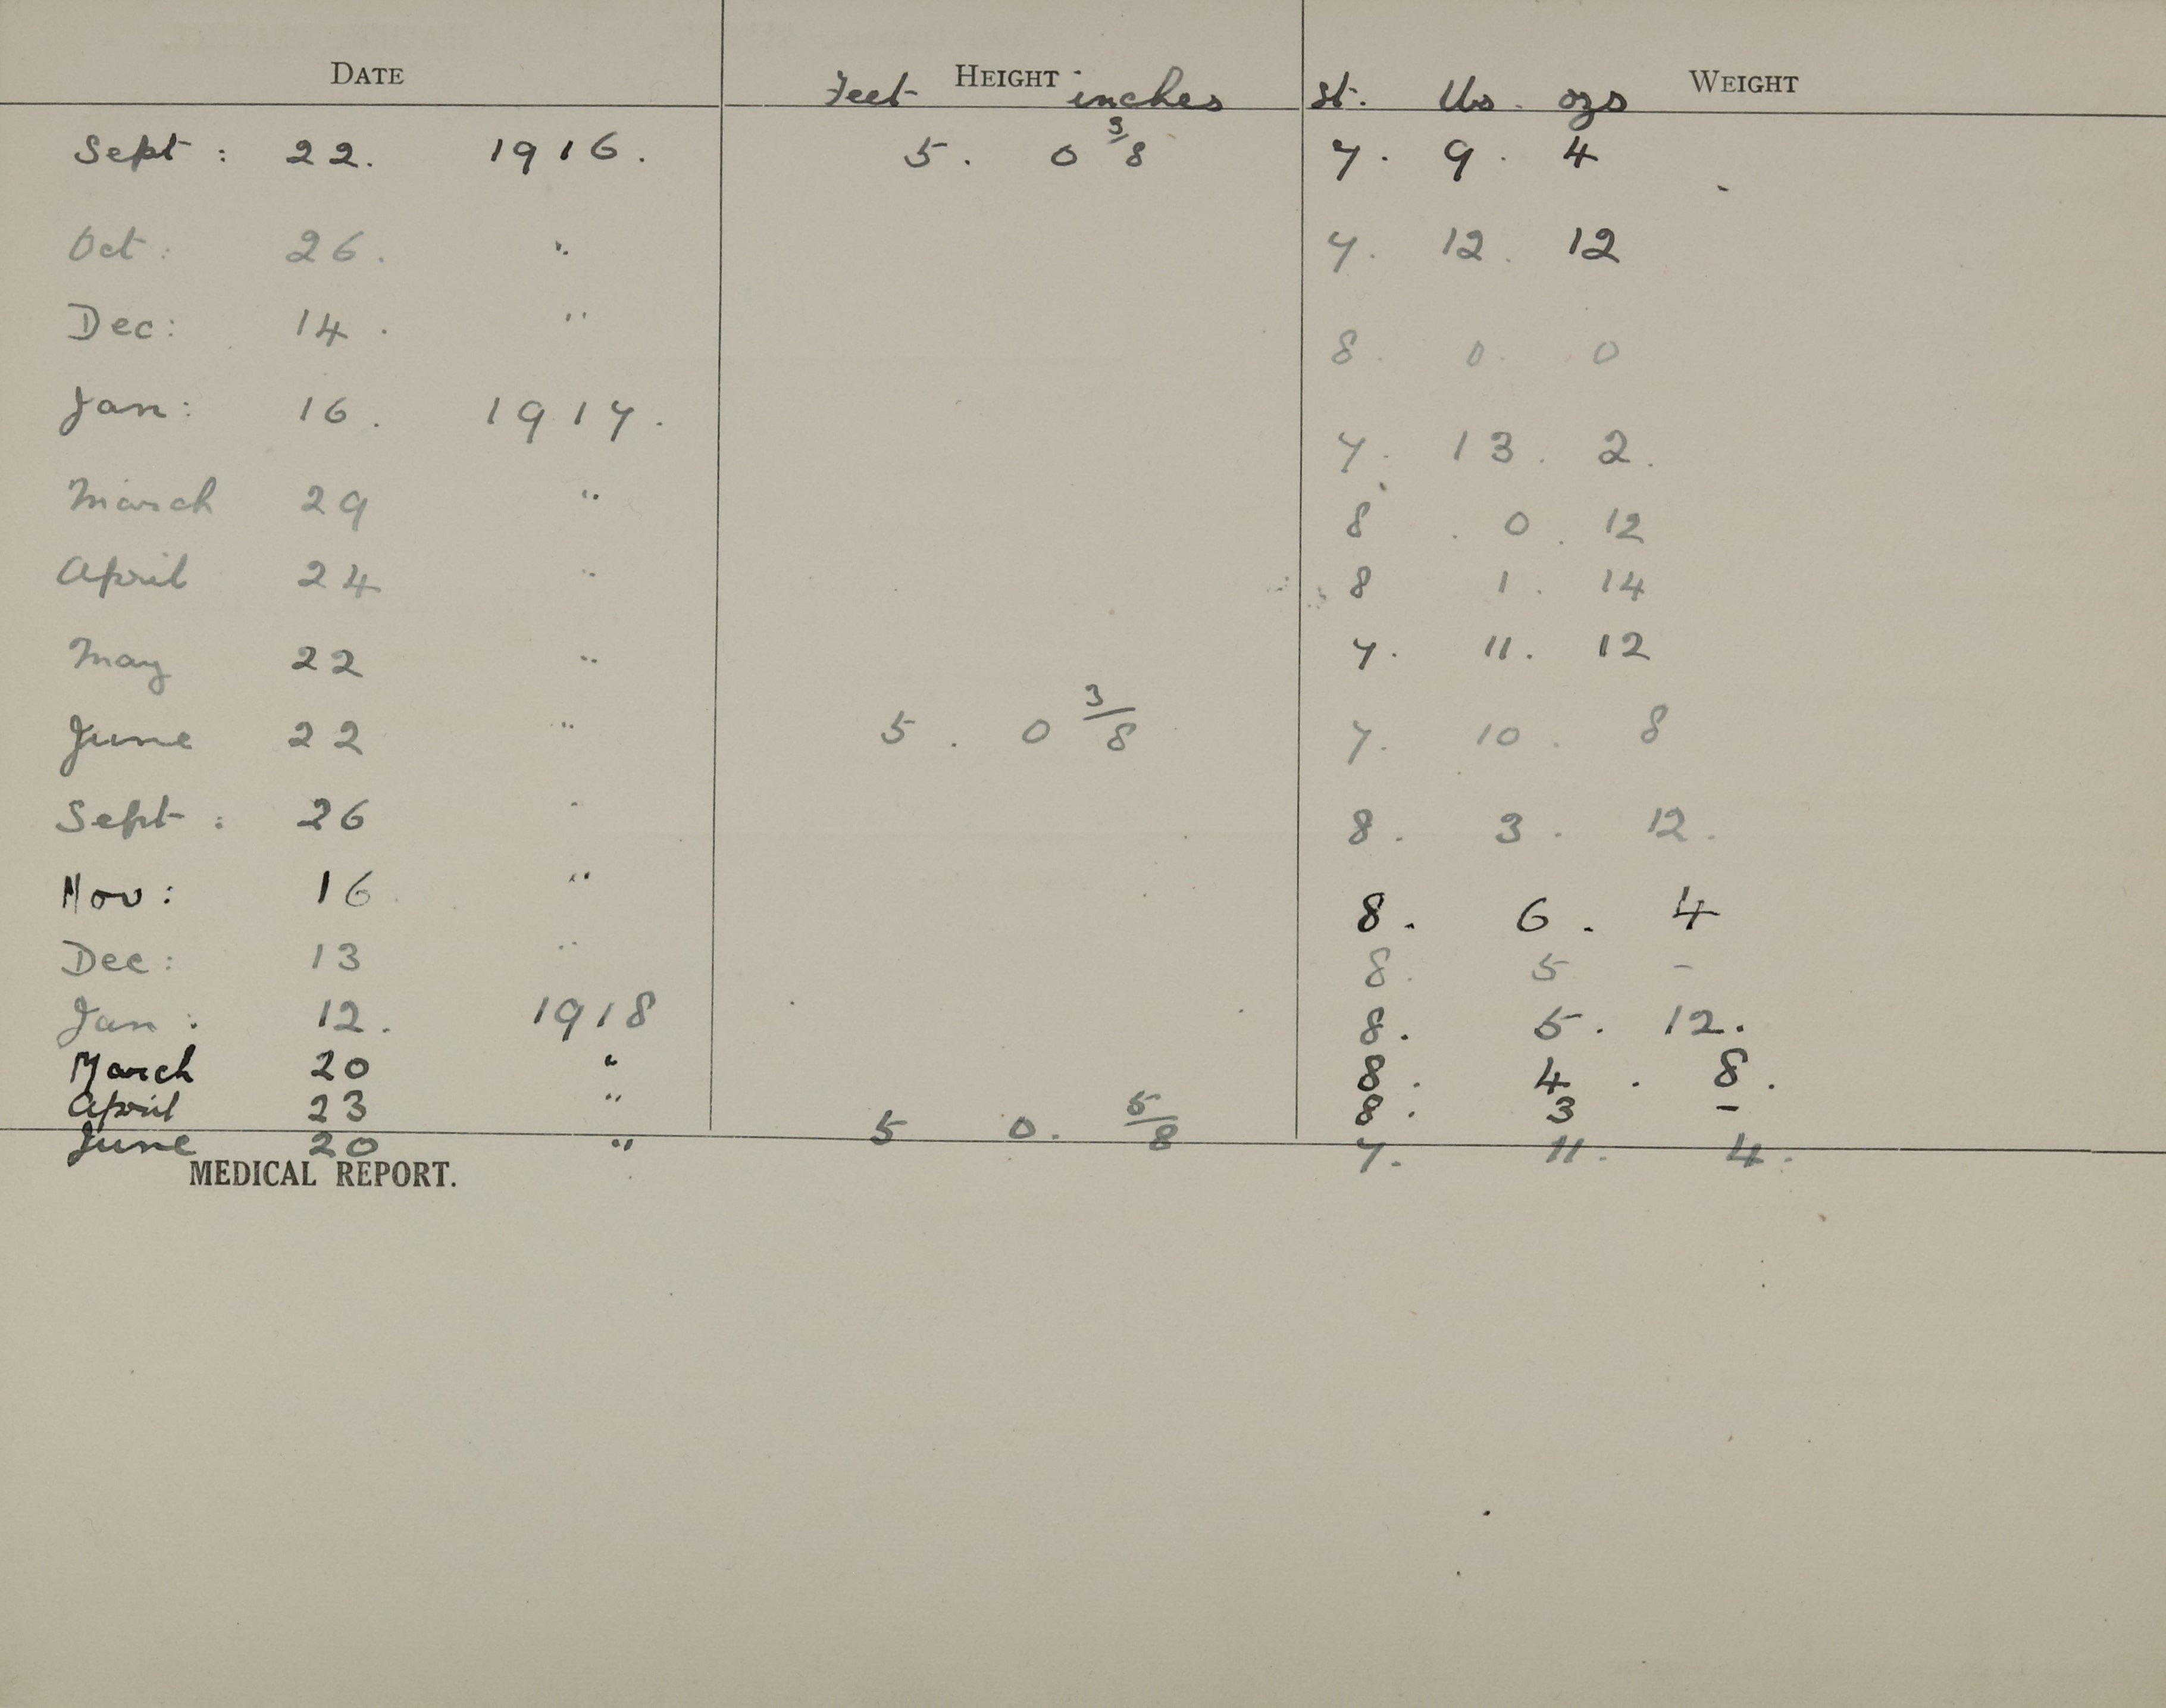 DATE Feet HEIGHT inches st. lbs. ozs WEIGHT
Sept : 22. 1916. 5. 0 3/8 7. 9. 4
Oct : 26. " 7. 12. 12
Dec: 14. " 8. 0. 0
Jan: 16. 1917. 7. 13. 2.
March 29 " 8. 0. 12
April 24 " 8 1. 14
May 22 " 7. 11. 12
June 22 " 5. 0 3/8 7. 10. 8
Sept : 26 " 8. 3. 12.
Nov : 16 " 8. 6. 4
Dec : 13 " 8. 5 -
Jan : 12. 1918 8. 5. 12.
March 20 " 8. 4. 8.
April 23 " 8. 3 -
June 20 " 5 0. 5/8 7. 11. 4.
MEDICAL REPORT.